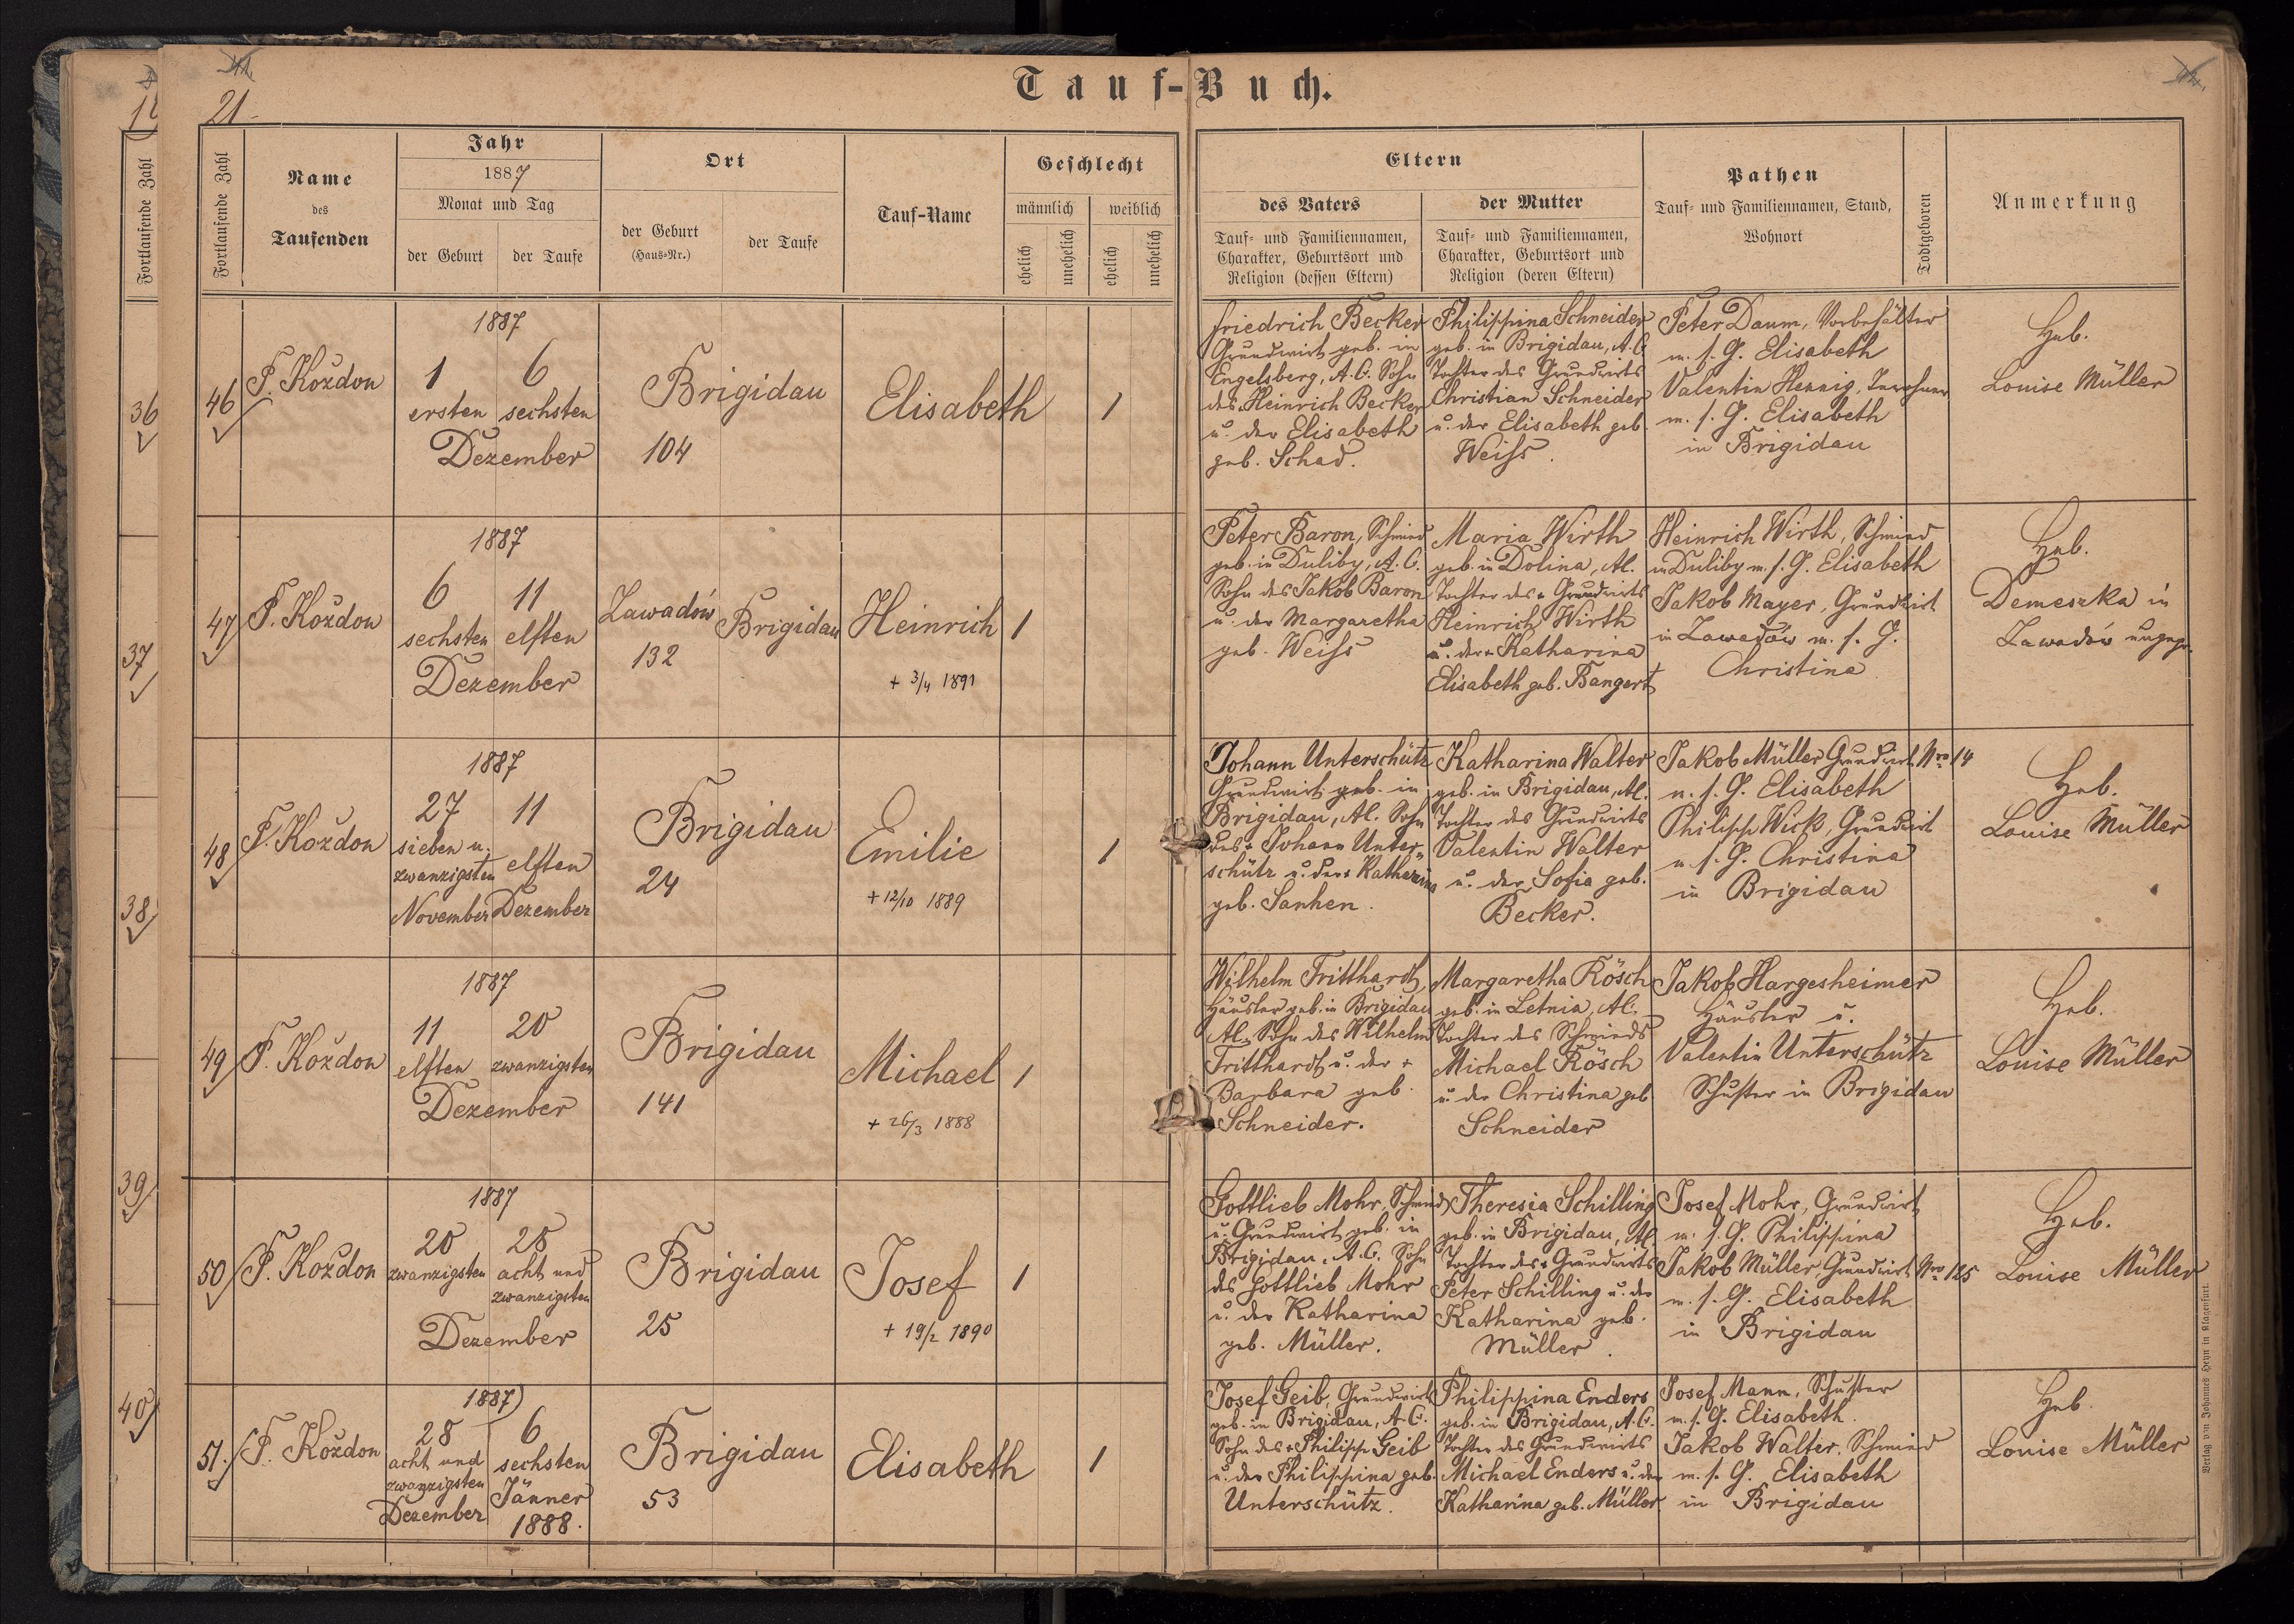 Tauf-Buch.
21
Fortlaufende Zahl
36
37
38
39
40
Fortlaufende Zahl
Name
des
Taufenden
Jahr
1887
Monat und Tag
der Geburt
der Taufe
Ort
der Geburt
(Haus-Nr.)
der Taufe
Tauf-Name
Geschlecht
männlich
weiblich
ehelich
unehelich
ehelich
unehelich
Eltern
des Vaters
Tauf- und Familiennamen,
Charakter, Geburtsort und
Religion (dessen Eltern)
der Mutter
Tauf- und Familiennamen,
Charakter, Geburtsort und
Religion (deren Eltern)
Pathen
Tauf- und Familiennamen, Stand,
Wohnort
Todtgeboren
Anmerkung
46
P. Kozdon
1887
1
ersten
6
sechsten
Dezember
Brigidau
104
Elisabeth
1
Friedrich Becker
Grundwirt geb. in
Engelsberg, A.C. Sohn
des Heinrich Becker
u. der Elisabeth
geb. Schad.
Philippina Schneider
geb. in Brigidau, A.C.
Tochter des Grundwirts
Christian Schneider
u. der Elisabeth geb.
Weiss.
Peter Daum, Vorbehälter
m. s. G. Elisabeth
Valentin Hennig, Inwohner
m. s. G. Elisabeth
in Brigidau
Heb.
Louise Müller
47
P. Kozdon
1887
6
sechsten
11
elften
Dezember
Zawadów
132
Brigidau
Heinrich
+ 3/4 1891
1
Peter Baron, Schmied
geb. in Duliby, A.C.
Sohn des Jakob Baron
u. der Margaretha
geb. Weiss
Maria Wirth
geb. in Dolina, A.C.
Tochter des + Grundwirts
Heinrich Wirth
u. der + Katharina
Elisabeth geb. Bangert
Heinrich Wirth, Schmied
in Duliby m. s. G. Elisabeth
Jakob Mayer, Grundwirt
in Zawadów m. s. G.
Christina
Heb.
Demeszka in
Zawadów ungepr.
48
P. Kozdon
1887
27
sieben u.
zwanzigsten
November
11
elften
Dezember
Brigidau
24
Emilie
+ 12/10 1889
1
Johann Unterschütz
Grundwirt geb. in
Brigidau, A.C. Sohn
des + Johann Unter-
schütz u. der + Katharina
geb. Sanhen.
Katharina Walter
geb. in Brigidau, A.C.
Tochter des Grundwirts
Valentin Walter
u. der Sofia geb.
Becker.
Jakob Müller Grundwirt Nro 14
m. s. G. Elisabeth
Philipp Wick, Grundwirt
m. s. G. Christina
in Brigidau
Heb.
Louise Müller
49
P. Kozdon
1887
11
elften
20
zwanzigsten
Dezember
Brigidau
141
Michael
+ 26/3 1888
1
Wilhelm Tritthardt,
Häusler geb. in Brigidau
A.C. Sohn des Wilhelm
Tritthardt u. der +
Barbara geb.
Schneider.
Margaretha Rösch
geb. in Letnia, A.C.
Tochter des Schmieds
Michael Rösch
u. der Christina geb.
Schneider
Jakob Hargesheimer
Häusler u.
Valentin Unterschütz
Schuster in Brigidau
Heb.
Louise Müller
50
P. Kozdon
1887
20
zwanzigsten
28
acht und
zwanzigsten
Dezember
Brigidau
25
Josef
+ 19/2 1890
1
Gottlieb Mohr, Schmied
u. Grundwirt geb. in
Brigidau, A.C. Sohn
des Gottlieb Mohr
u. der Katharina
geb. Müller.
Theresia Schilling
geb. in Brigidau, A.C.
Tochter des + Grundwirts
Peter Schilling u. der
Katharina geb.
Müller.
Josef Mohr, Grundwirt
m. s. G. Philippina
Jakob Müller, Grundwirt Nro 125
m. s. G. Elisabeth
in Brigidau
Heb.
Louise Müller
51.
P. Kozdon
1887
28
acht und
zwanzigsten
Dezember
6
sechsten
Jänner
1888.
Brigidau
53
Elisabeth
1
Josef Geib, Grundwirt
geb. in Brigidau, A.C.
Sohn des + Philipp Geib
u. der Philippina geb.
Unterschütz.
Philippina Enders
geb. in Brigidau, A.C.
Tochter des Grundwirts
Michael Enders u. der
Katharina geb. Müller
Josef Mann, Schuster
m. s. G. Elisabeth.
Jakob Walter, Schmied
m. s. G. Elisabeth
in Brigidau
Heb.
Louise Müller
Verlag von Johannes Heyn in Klagenfurt.